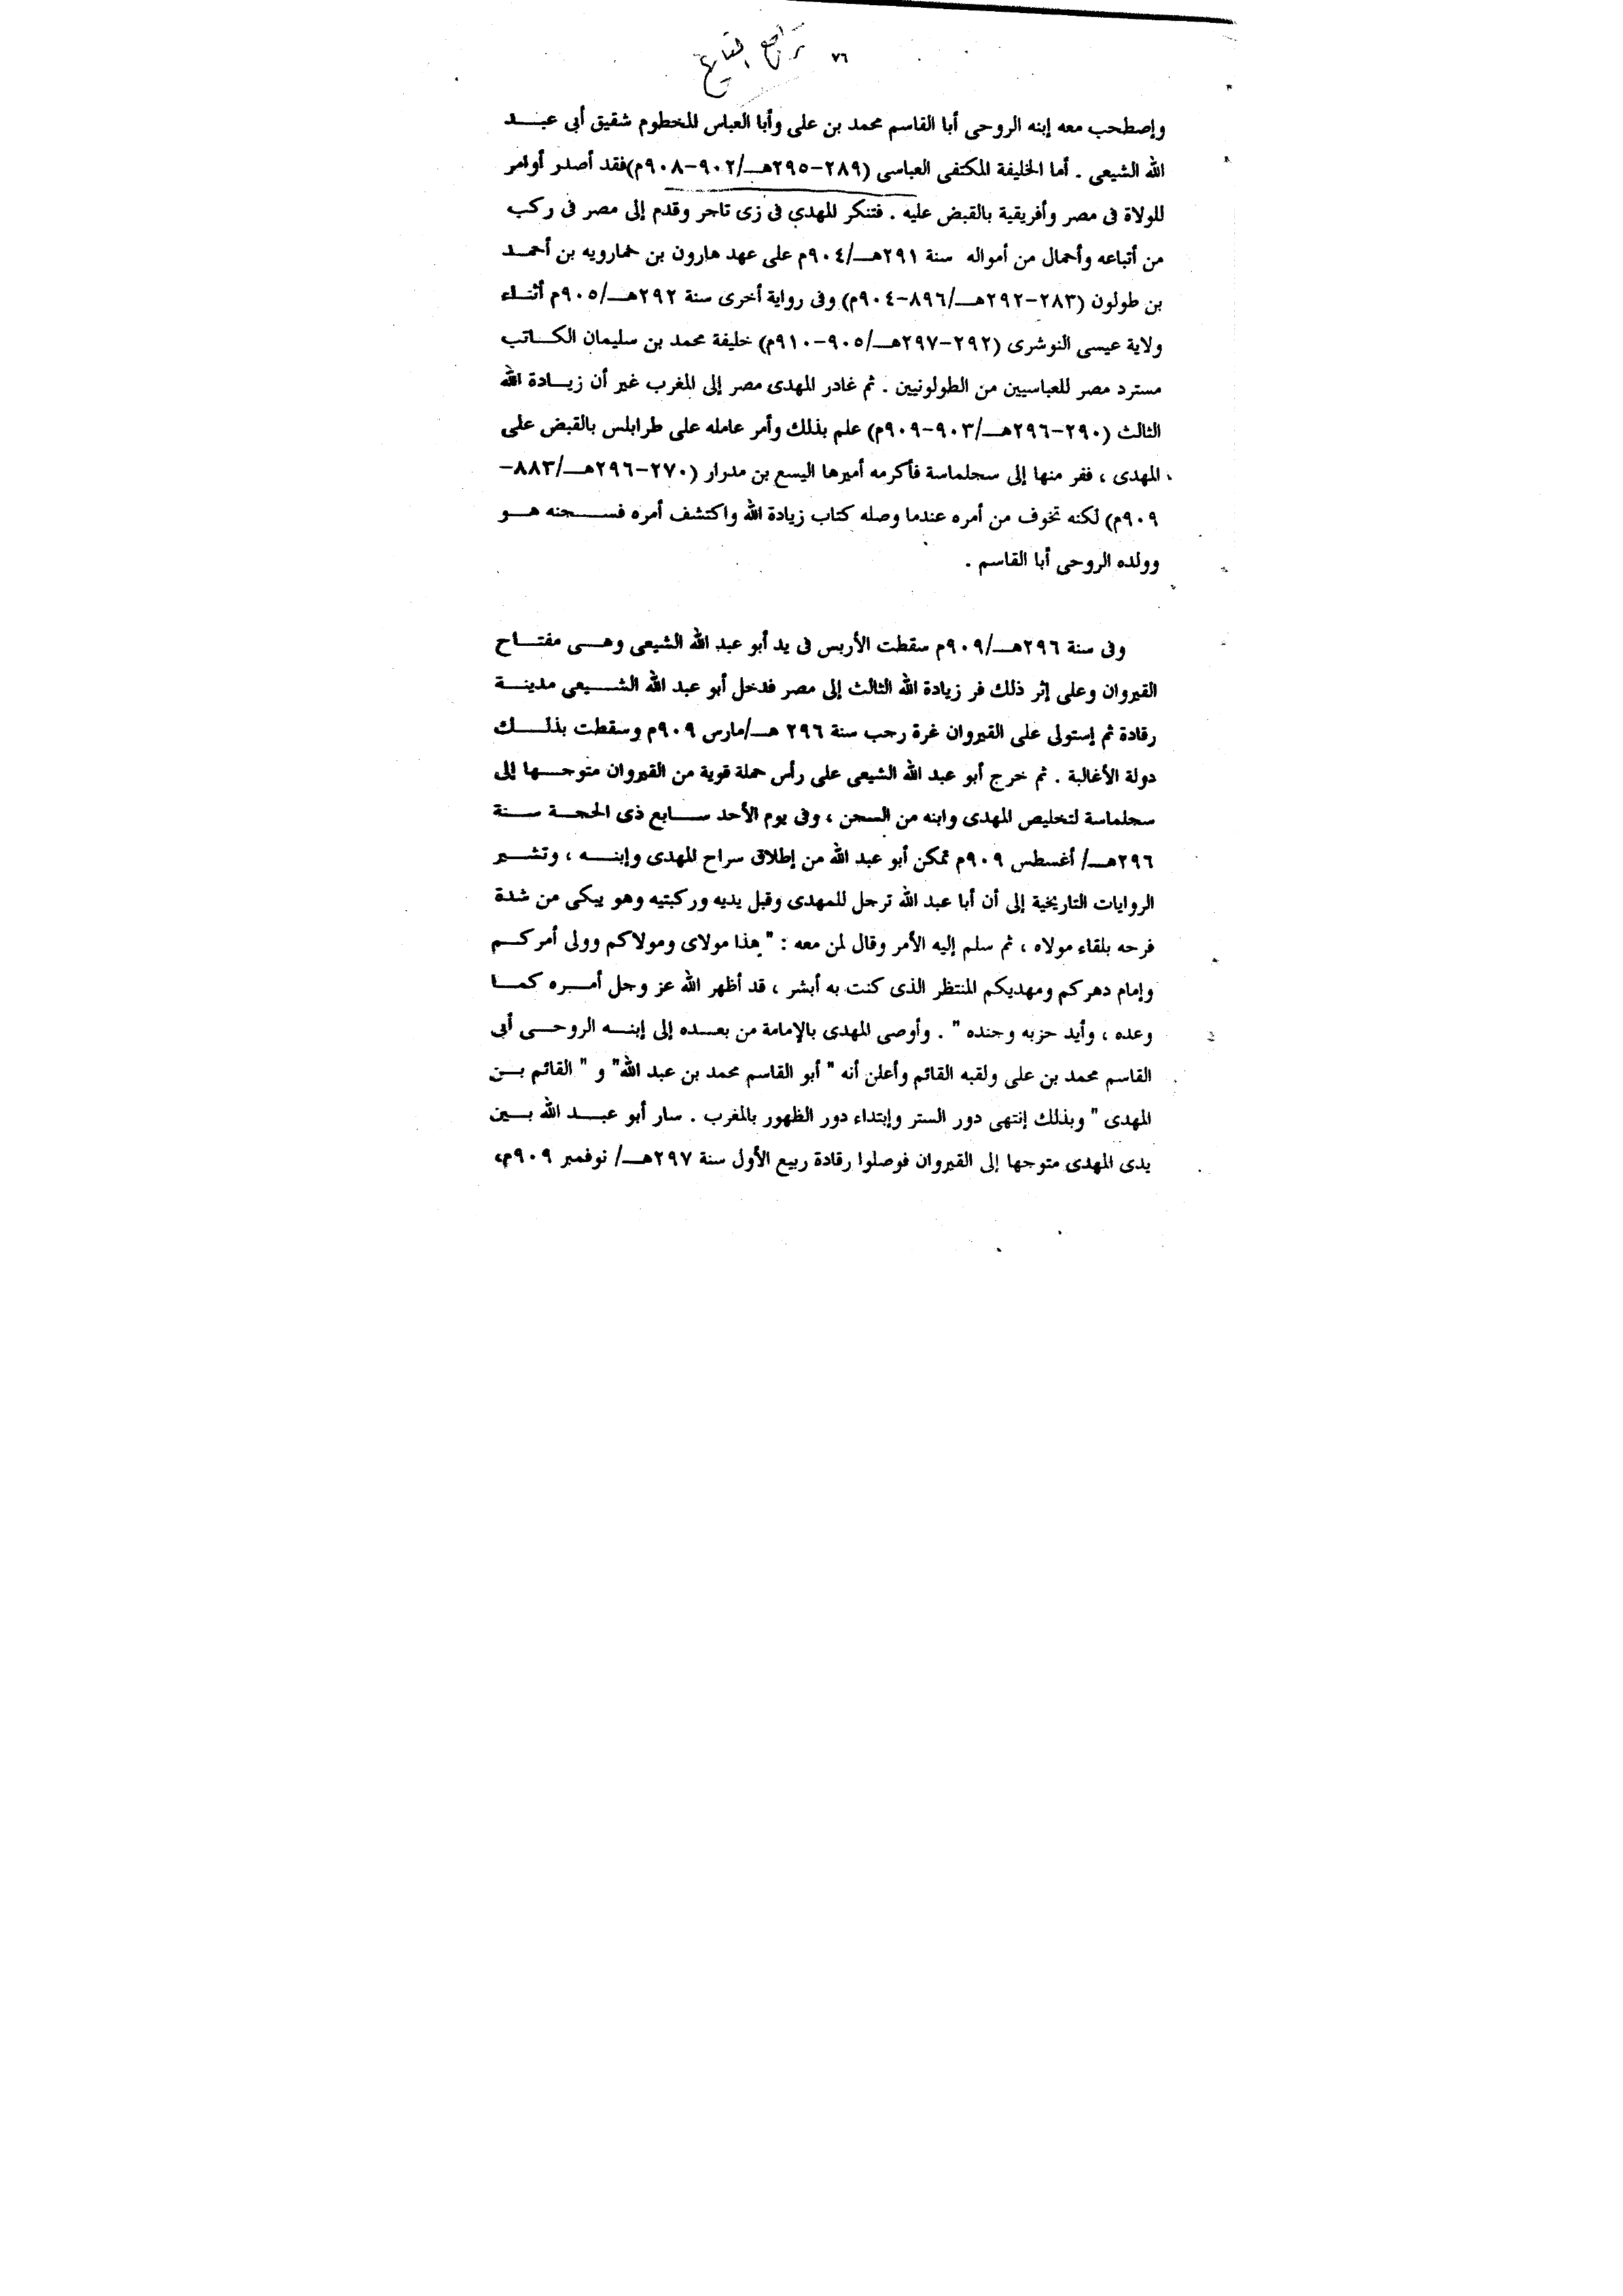 ٧٦
وإصطحب معه إبنه الروحى أبا القاسم محمد بن على وأبا العباس المخطوم شقيق أبى عبد
الله الشيعى . أما الخليفة المكتفى العباسى (٢٨٩-٢٩٥هـ/٩٠٢-٩٠٨م)فقد أصدر أوامر
للولاة فى مصر وأفريقية بالقبض عليه . فتنكر المهدى فى زى تاجر وقدم إلى مصر فى ركب
من أتباعه وأحمال من أمواله سنة ٢٩١هـ/٩٠٤م على عهد هارون بن خمارويه بن أحمد
بن طولون (٢٨٣-٢٩٢هـ/٨٩٦-٩٠٤م) وفى رواية أخرى سنة ٢٩٢هـ/٩٠٥م أثناء
ولاية عيسى النوشرى (٢٩٢-٢٩٧هـ/٩٠٥-٩١٠م) خليفة محمد بن سليمان الكاتب
مسترد مصر للعباسيين من الطولونيين . ثم غادر المهدى مصر إلى المغرب غير أن زيادة الله
الثالث (٢٩٠-٢٩٦هـ/٩٠٣-٩٠٩م) علم بذلك وأمر عامله على طرابلس بالقبض على
المهدى ، ففر منها إلى سجلماسة فأكرمه أميرها اليسع بن مدرار (٢٧٠-٢٩٦هـ/٨٨٣-
٩٠٩م) لكنه تخوف من أمره عندما وصله كتاب زيادة الله واكتشف أمره فسجنه هو
وولده الروحى أبا القاسم .
وفى سنة ٢٩٦هـ/٩٠٩م سقطت الأربس فى يد أبو عبد الله الشيعى وهى مفتاح
القيروان وعلى إثر ذلك فر زيادة الله الثالث إلى مصر فدخل أبو عبد الله الشيعى مدينة
رقادة ثم إستولى على القيروان غرة رجب سنة ٢٩٦ هـ/مارس ٩٠٩م وسقطت بذلك
دولة الأغالبة . ثم خرج أبو عبد الله الشيعى على رأس حملة قوية من القيروان متوجها إلى
سجلماسة لتخليص المهدى وابنه من السجن ، وفى يوم الأحد سابع ذى الحجة سنة
٢٩٦هـ/ أغسطس ٩٠٩م تمكن أبو عبد الله من إطلاق سراح المهدى وإبنه ، وتشير
الروايات التاريخية إلى أن أبا عبد الله ترجل للمهدى وقبل يديه وركبتيه وهو يبكى من شدة
فرحه بلقاء مولاه ، ثم سلم إليه الأمر وقال لمن معه : " هذا مولاى ومولاكم وولى أمركم
وإمام دهركم ومهديكم المنتظر الذى كنت به أبشر ، قد أظهر الله عز وجل أمره كما
وعده ، وأيد حزبه وجنده " . وأوصى المهدى بالإمامة من بعده إلى إبنه الروحى أبى
القاسم محمد بن على ولقبه القائم وأعلن أنه " أبو القاسم محمد بن عبد الله" و " القائم بن
المهدى " وبذلك إنتهى دور الستر وإبتداء دور الظهور بالمغرب . سار أبو عبد الله بين
يدى المهدى متوجها إلى القيروان فوصلوا رقادة ربيع الأول سنة ٢٩٧هـ/ نوفمبر ٩٠٩م،